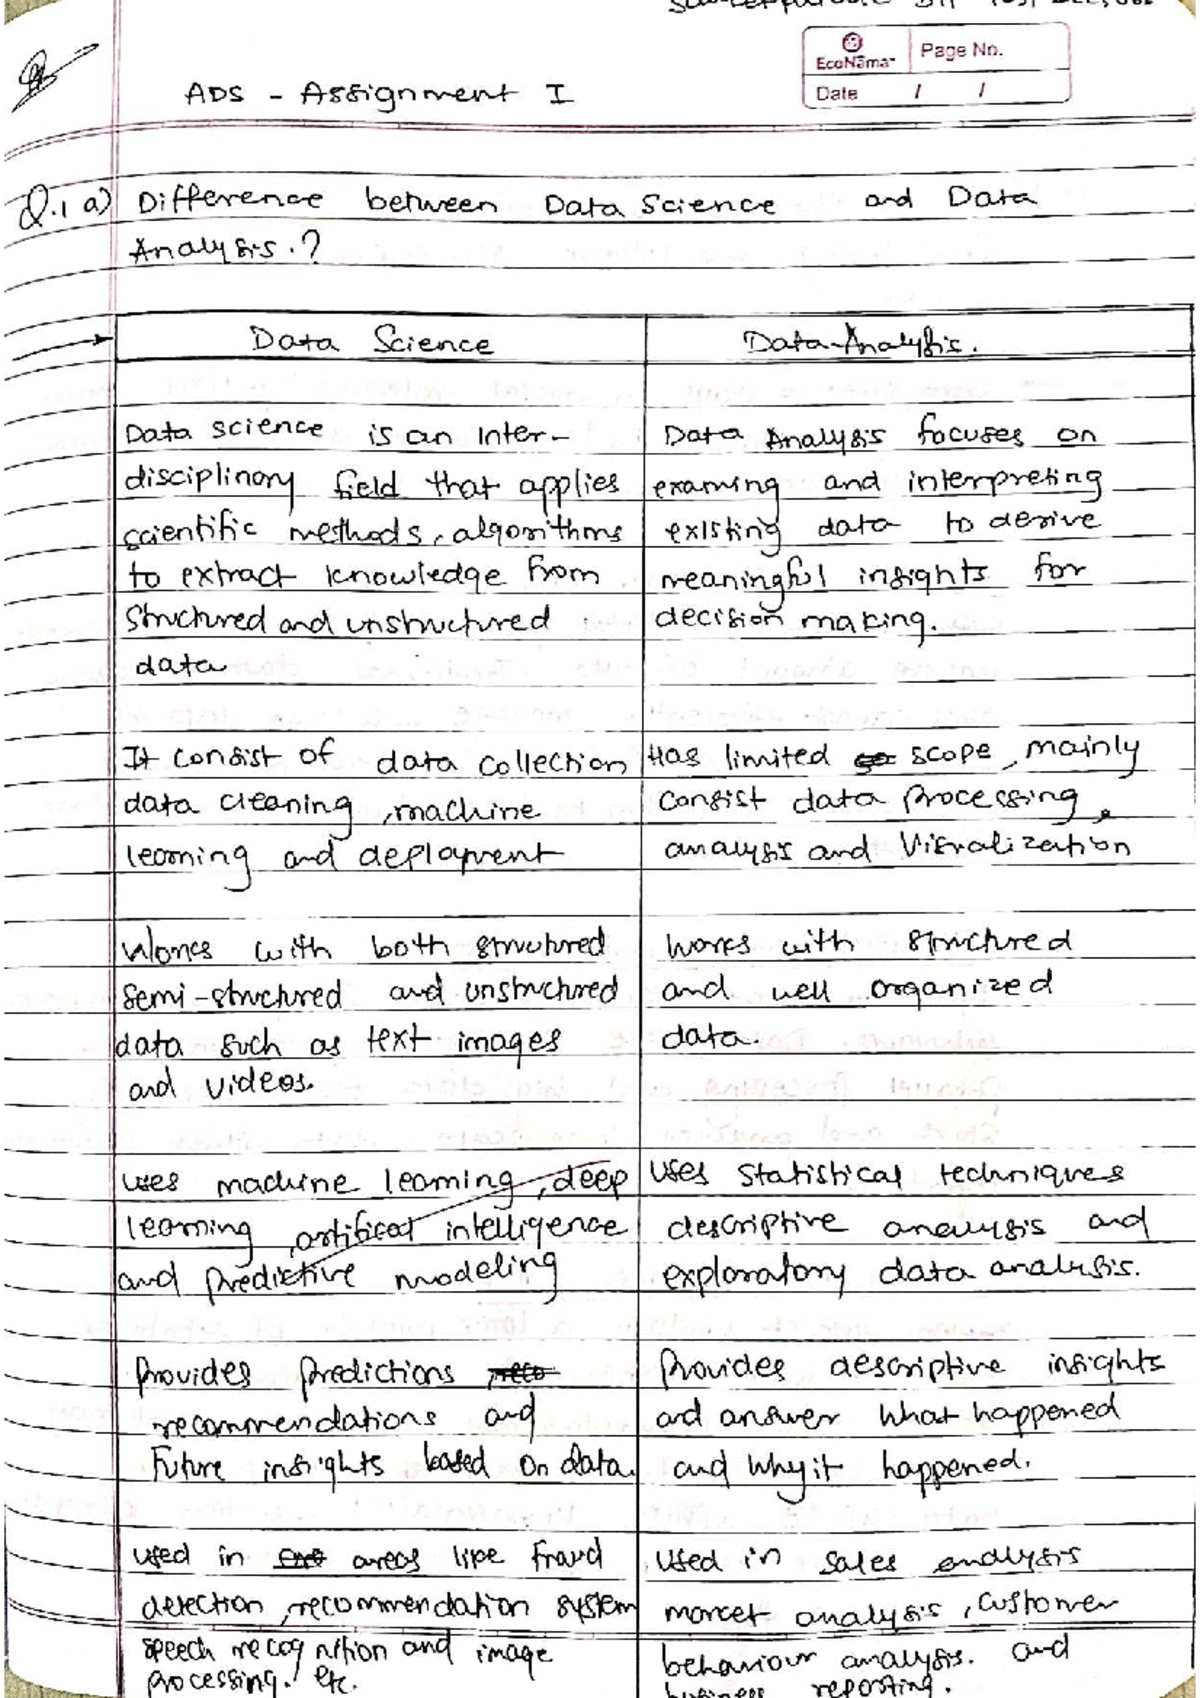 EcoNama
Page No.
Date / /
ADS - Assignment I
Q.1 a) Difference between Data Science and Data
Analysis.?
Data Science
Data Analysis.
Data science is an Inter-
disciplinary field that applies
scientific methods, algorithms
to extract knowledge from
structured and unstructured
data
Data Analysis focuses on
examing and interpreting
existing data to derive
meaningful insights for
decision making.
It consist of data collection
data cleaning, machine
learning and deployment
Has limited scope, mainly
consist data processing,
analysis and Visualization
Works with both structured
semi-structured and unstructured
data such as text images
and videos.
Works with structured
and well organized
data.
uses machine learning, deep
learning, artificat intelligence
and predictive modeling
uses statistical techniques
descriptive analysis and
exploratory data analysis.
Provides predictions
recommendations and
Future insights based on data.
Provides descriptive insights
and answer what happened
and why it happened.
used in areas like fraud
detection, recommendation system
speech recognition and image
processing. etc.
Used in sales analysis
market analysis, customer
behaviour analysis. and
business reporting.